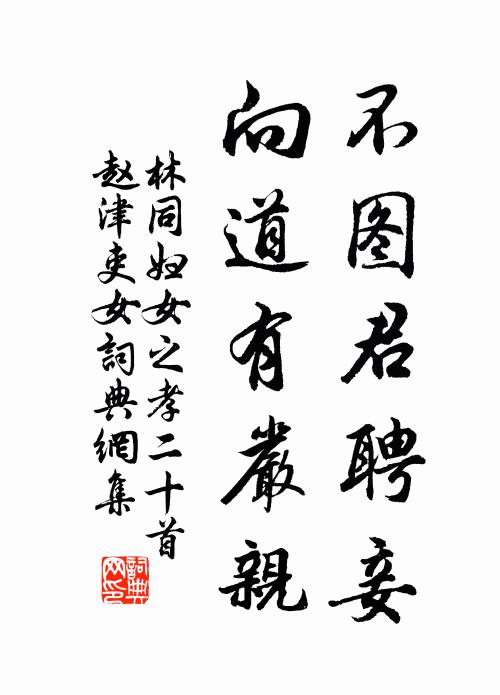 不图君聘妾
向道有嚴親
林同妇女之孝二十首
赵津吏女詞典網集
詞典网印